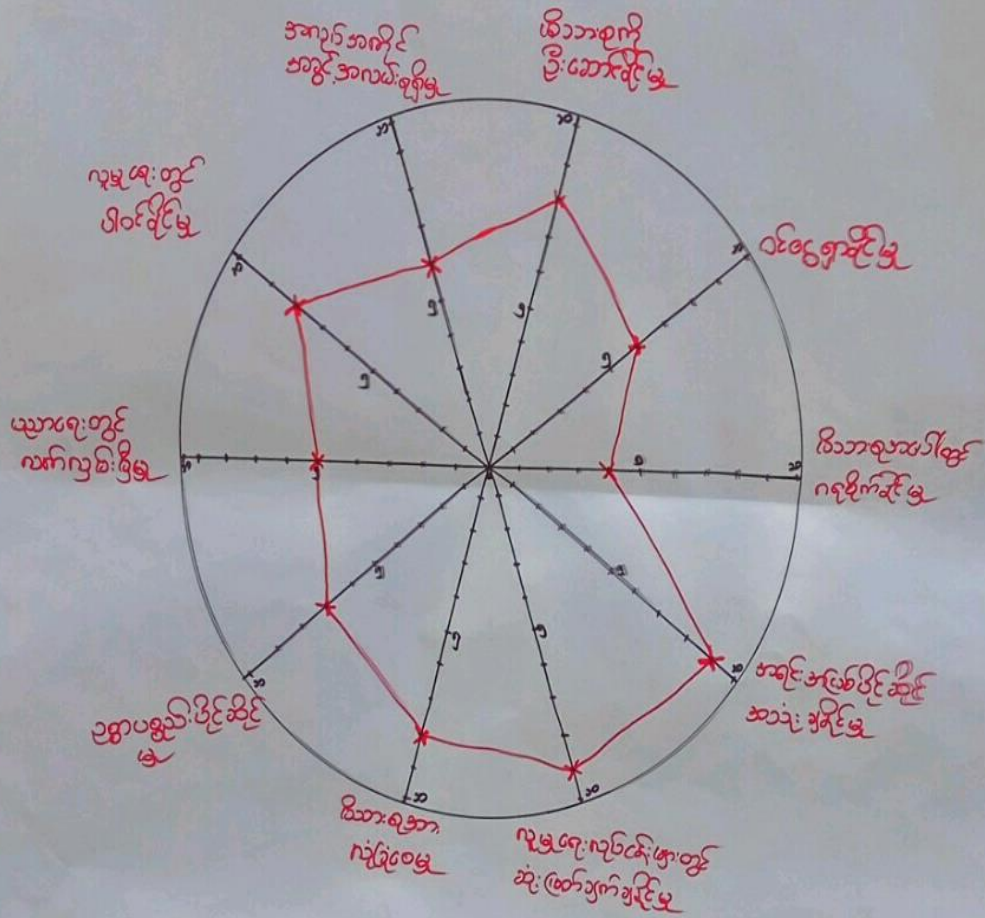 အကျပ်အတိုင်
အခွင့်အလမ်းရရှိမှု
မိသားစုကို
ဦးဆောင်နိုင်မှု
ဝင်ငွေရှာနိုင်မှု
မိသားစုအပေါ်တွင်
ဂရုစိုက်နိုင်မှု
အရင်းအမြစ်ပိုင်ဆိုင်
အသုံးချနိုင်မှု
လူမှုရေးလုပ်ငန်းများတွင်
ဆုံးဖြတ်ချက်ချနိုင်မှု
မိသားစုအား
လုံခြုံစေမှု
ဥစ္စာပစ္စည်းပိုင်ဆိုင်
မှု
ပညာရေးတွင်
လက်လှမ်းမှီမှု
လူမှုရေးတွင်
ပါဝင်နိုင်မှု
၁၀
၁၀
၁၀
၁၀
၁၀
၁၀
၁၀
၁၀
၁၀
၁၀
၅
၅
၅
၅
၅
၅
၅
၅